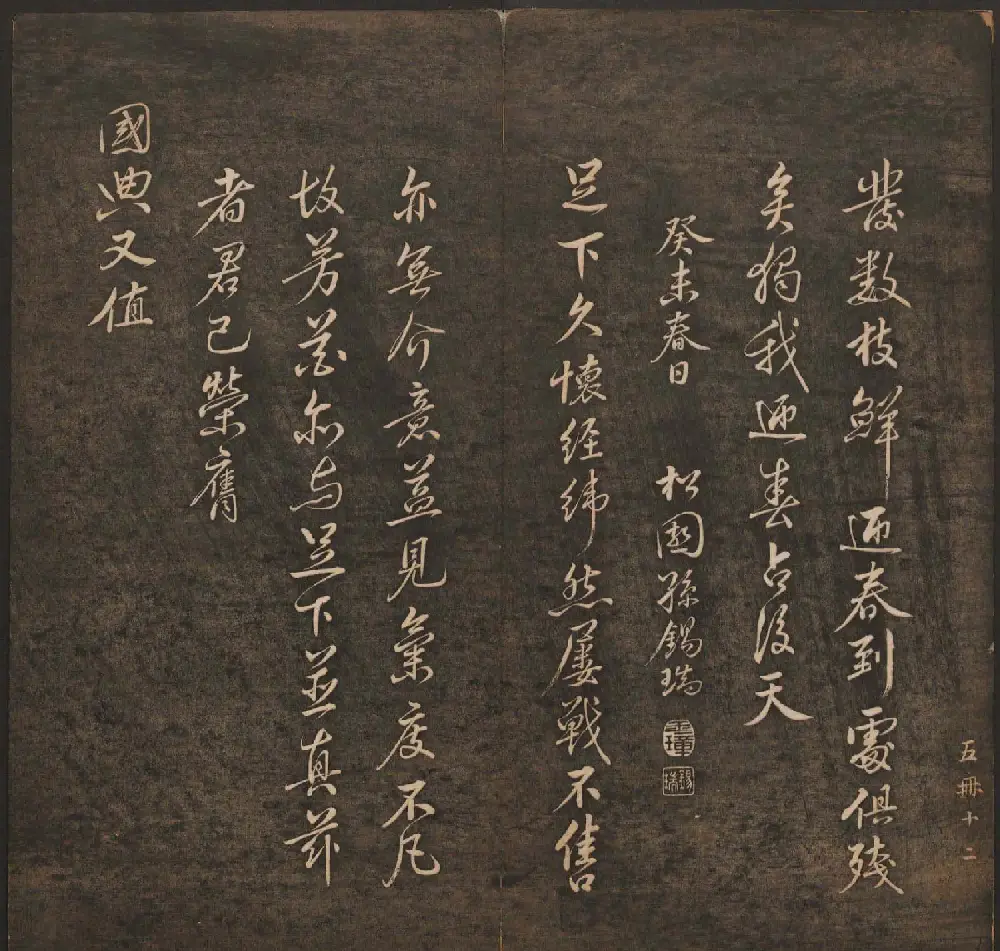 五冊十二
發數枝鮮迎春到處俱殘
矣獨我迎春占後天
癸未春日 松園孫錫瑞
足下久懷經緯然屢戰不售
亦無介意益見氣度不凡
故芳名亦与足下並真茲
者君已榮膺
國典又值